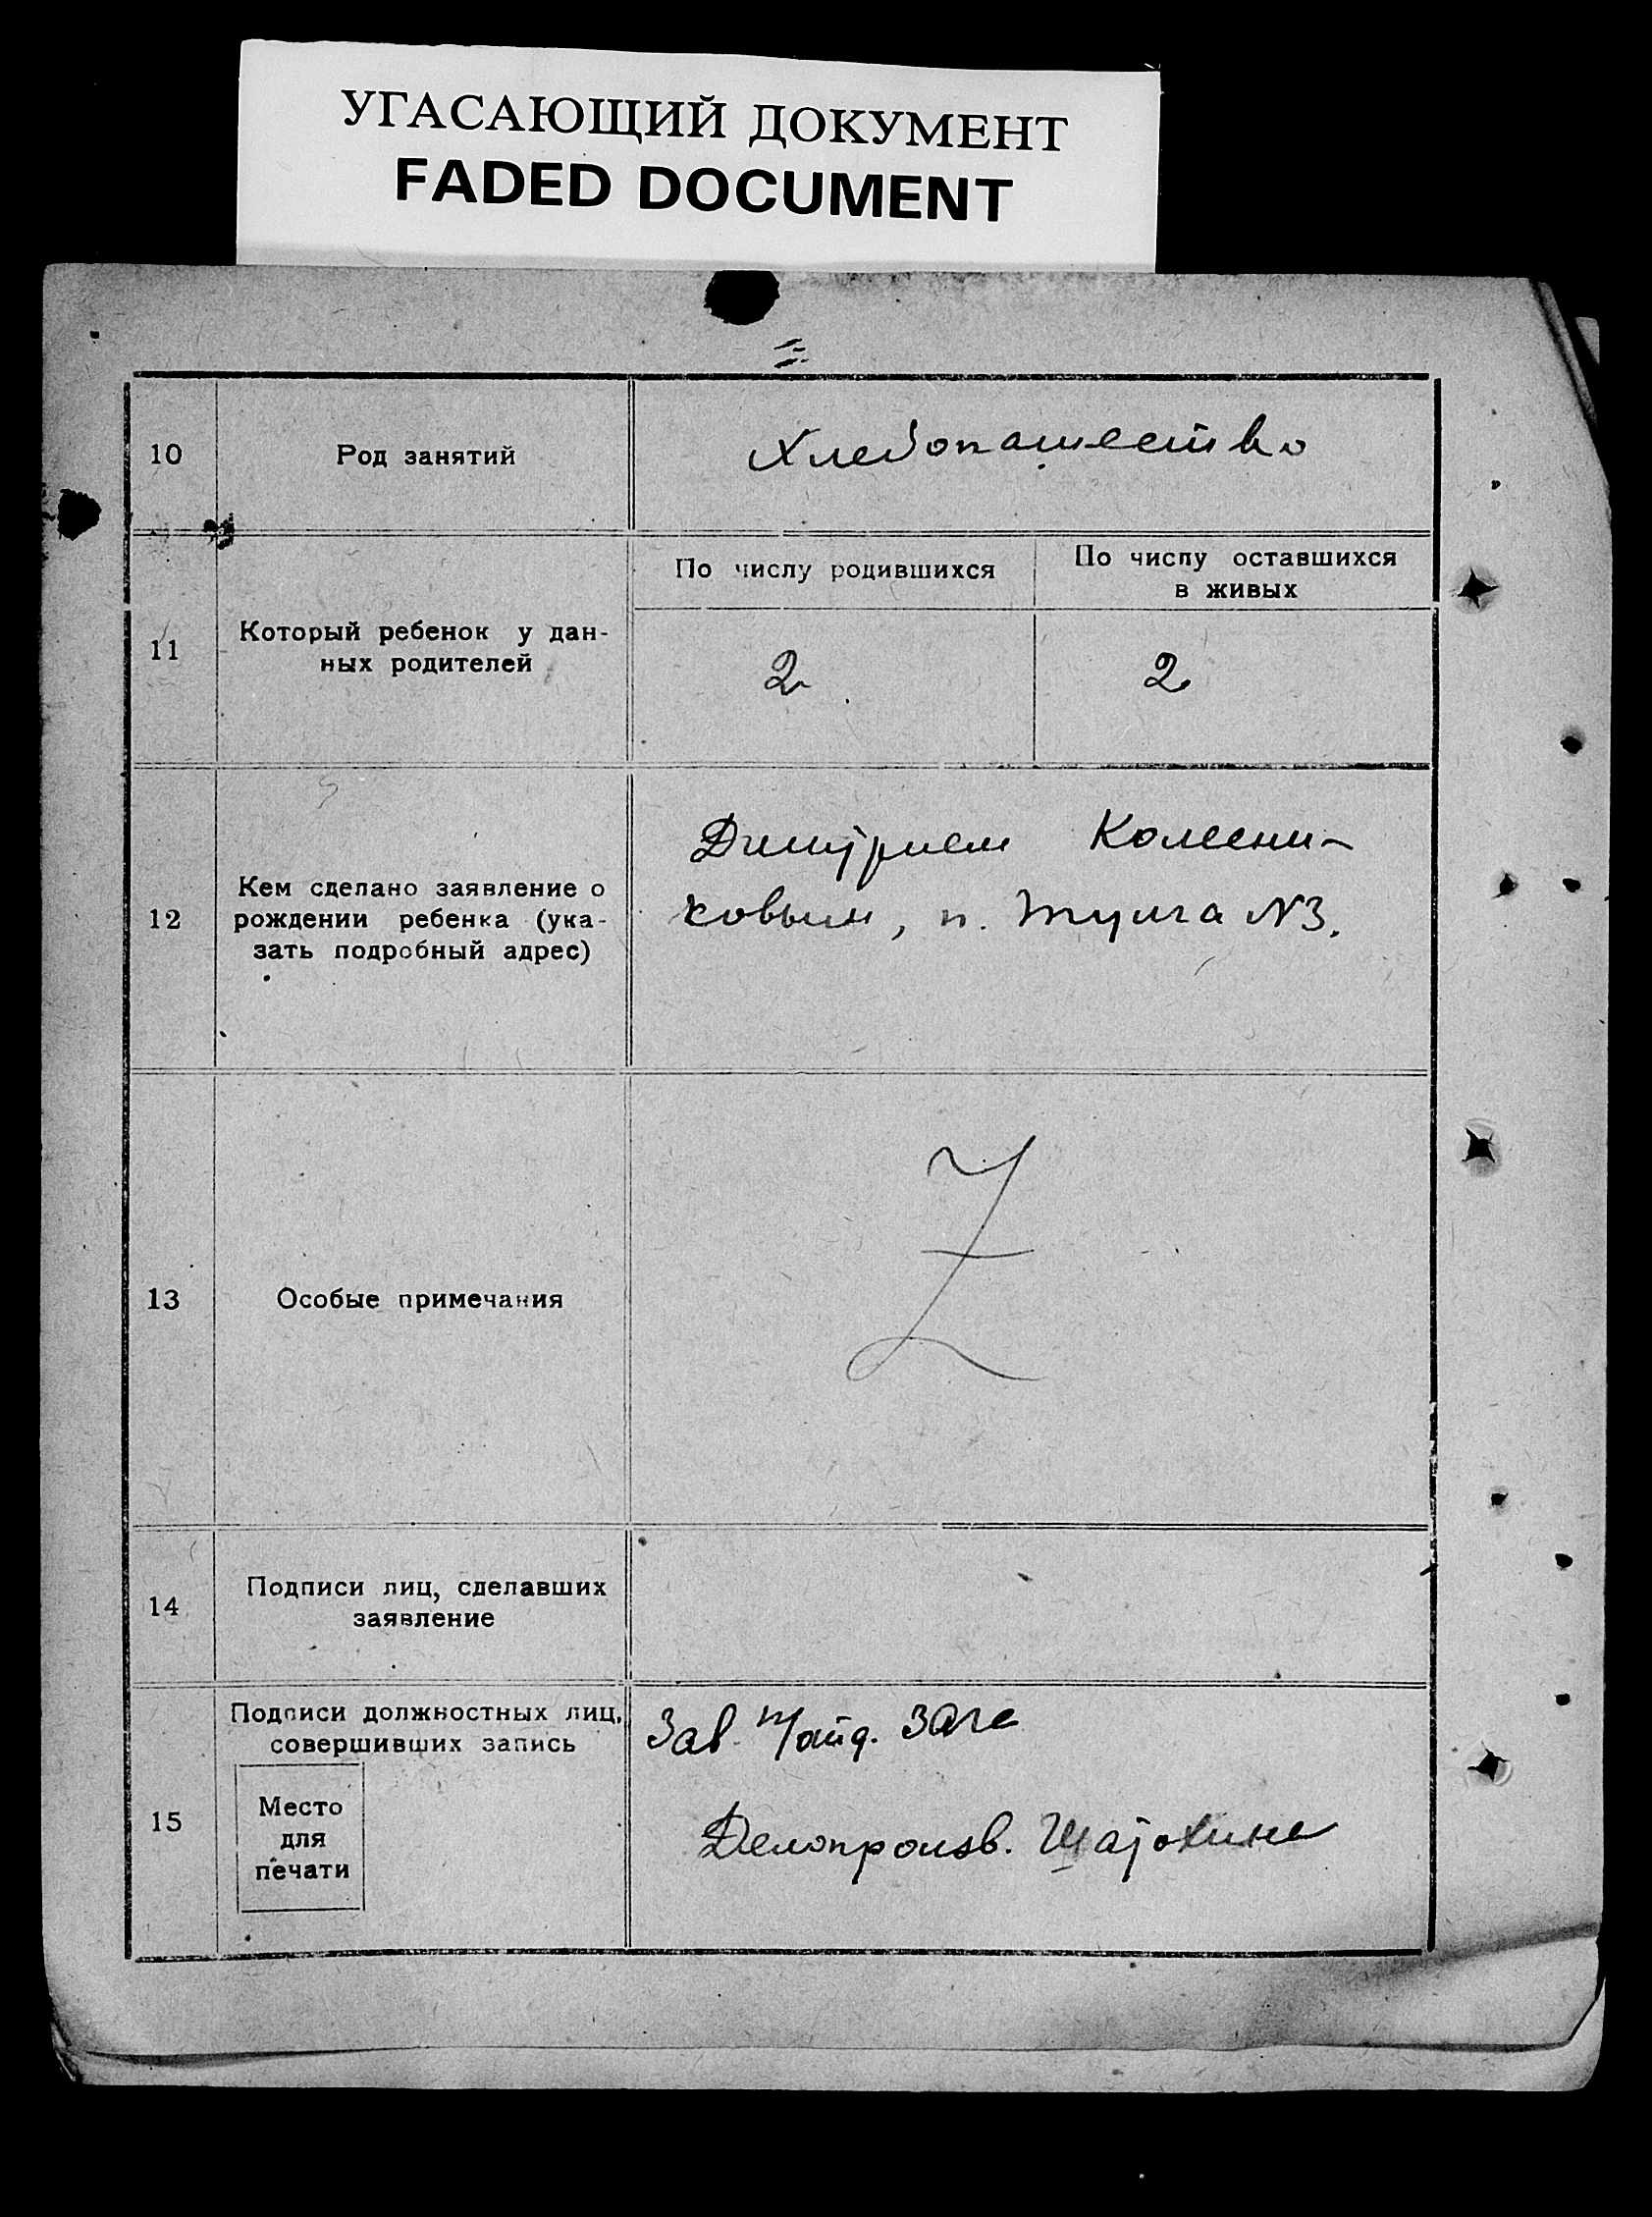 УГАСАЮЩИЙ ДОКУМЕНТ
FADED DOCUMENT
10 Род занятий Хлебопашество
11 Который ребенок у дан-
ных родителей
По числу родившихся
По числу оставшихся
в живых
2 2
12 Кем сделано заявление о
рождении ребенка (ука-
зать подробный адрес)
Димитрием Колесни-
ковым, п. №3.
13 Особые примечания Z
14 Подписи лиц, сделавших
заявление
15 Подписи должностных лиц,
совершивших запись
Место
для
печати
Зав. п/отд. ЗАГС
Делопроизв.